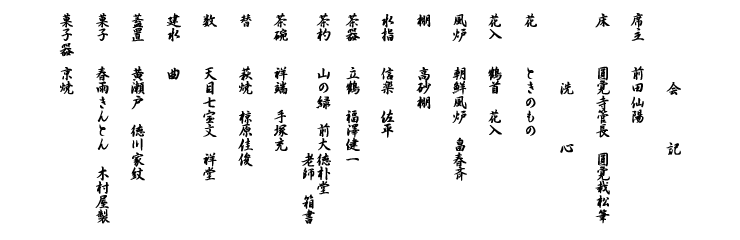 会記
席主 前田仙陽
床 圓覚寺管長 圓覚栽松筆
洗心
花 ときのもの
花入 鶴首 花入
風炉 朝鮮風炉 畠春斉
棚 高砂棚
水指 信楽 佐平
茶器 立鶴 福澤健一
茶杓 山の緑 前大徳朴堂老師 箱書
茶碗 祥瑞 手塚充
替 萩焼 椋原佳俊
数 天目七宝文 祥堂
建水 曲
蓋置 黄瀬戸 徳川家紋
菓子 春雨きんとん 木村屋製
菓子器 京焼